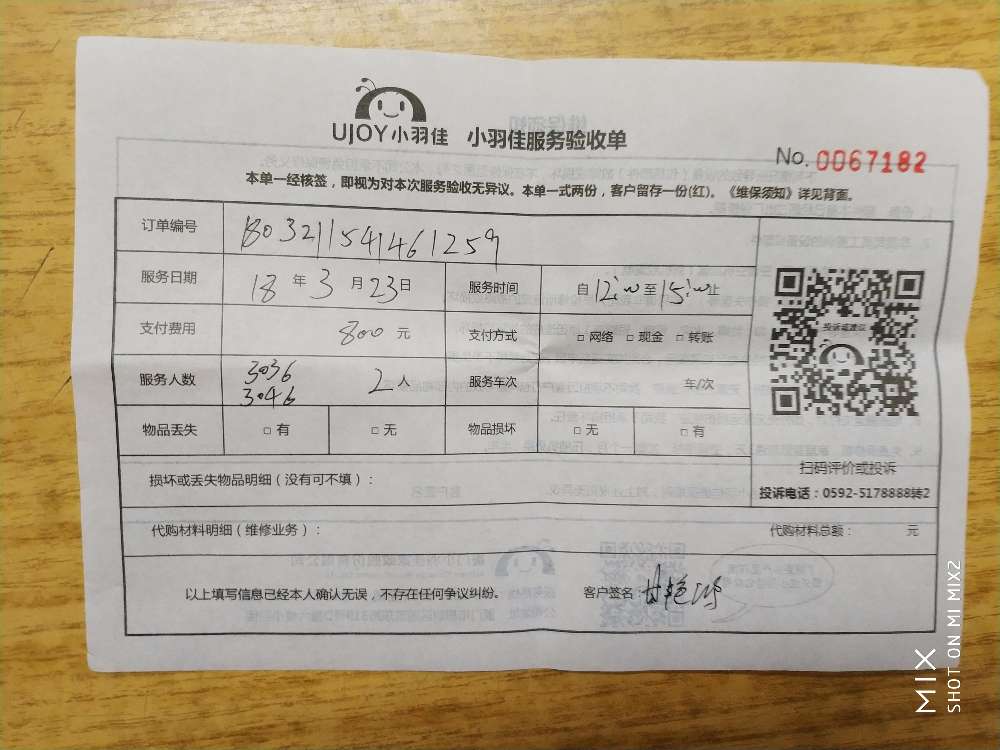 UJOY小羽佳 小羽佳服务验收单
No. 0067182
本单一经核签，即视为对本次服务验收无异议。本单一式两份，客户留存一份(红)。《维保须知》详见背面。
订单编号 1803211541461259
服务日期 18 年 3 月 23 日 服务时间 自 12:00 至 15:00 止
支付费用 800 元 支付方式 □ 网络 □ 现金 □ 转账
服务人数 3036 3046 2 人 服务车次 车/次
物品丢失 □ 有 □ 无 物品损坏 □ 无 □ 有
投诉或建议
扫码评价或投诉
投诉电话：0592-5178888转2
损坏或丢失物品明细（没有可不填）：
代购材料明细（维修业务）： 代购材料总额： 元
以上填写信息已经本人确认无误，不存在任何争议纠纷。 客户签名：甘艳
MIX
SHOT ON MI MIX2